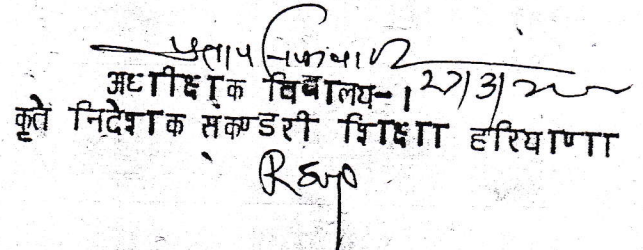 प्रताप
अधीक्षक विद्यालय-1 27/3/
कृते निदेशक सैकण्डरी शिक्षा हरियाणा